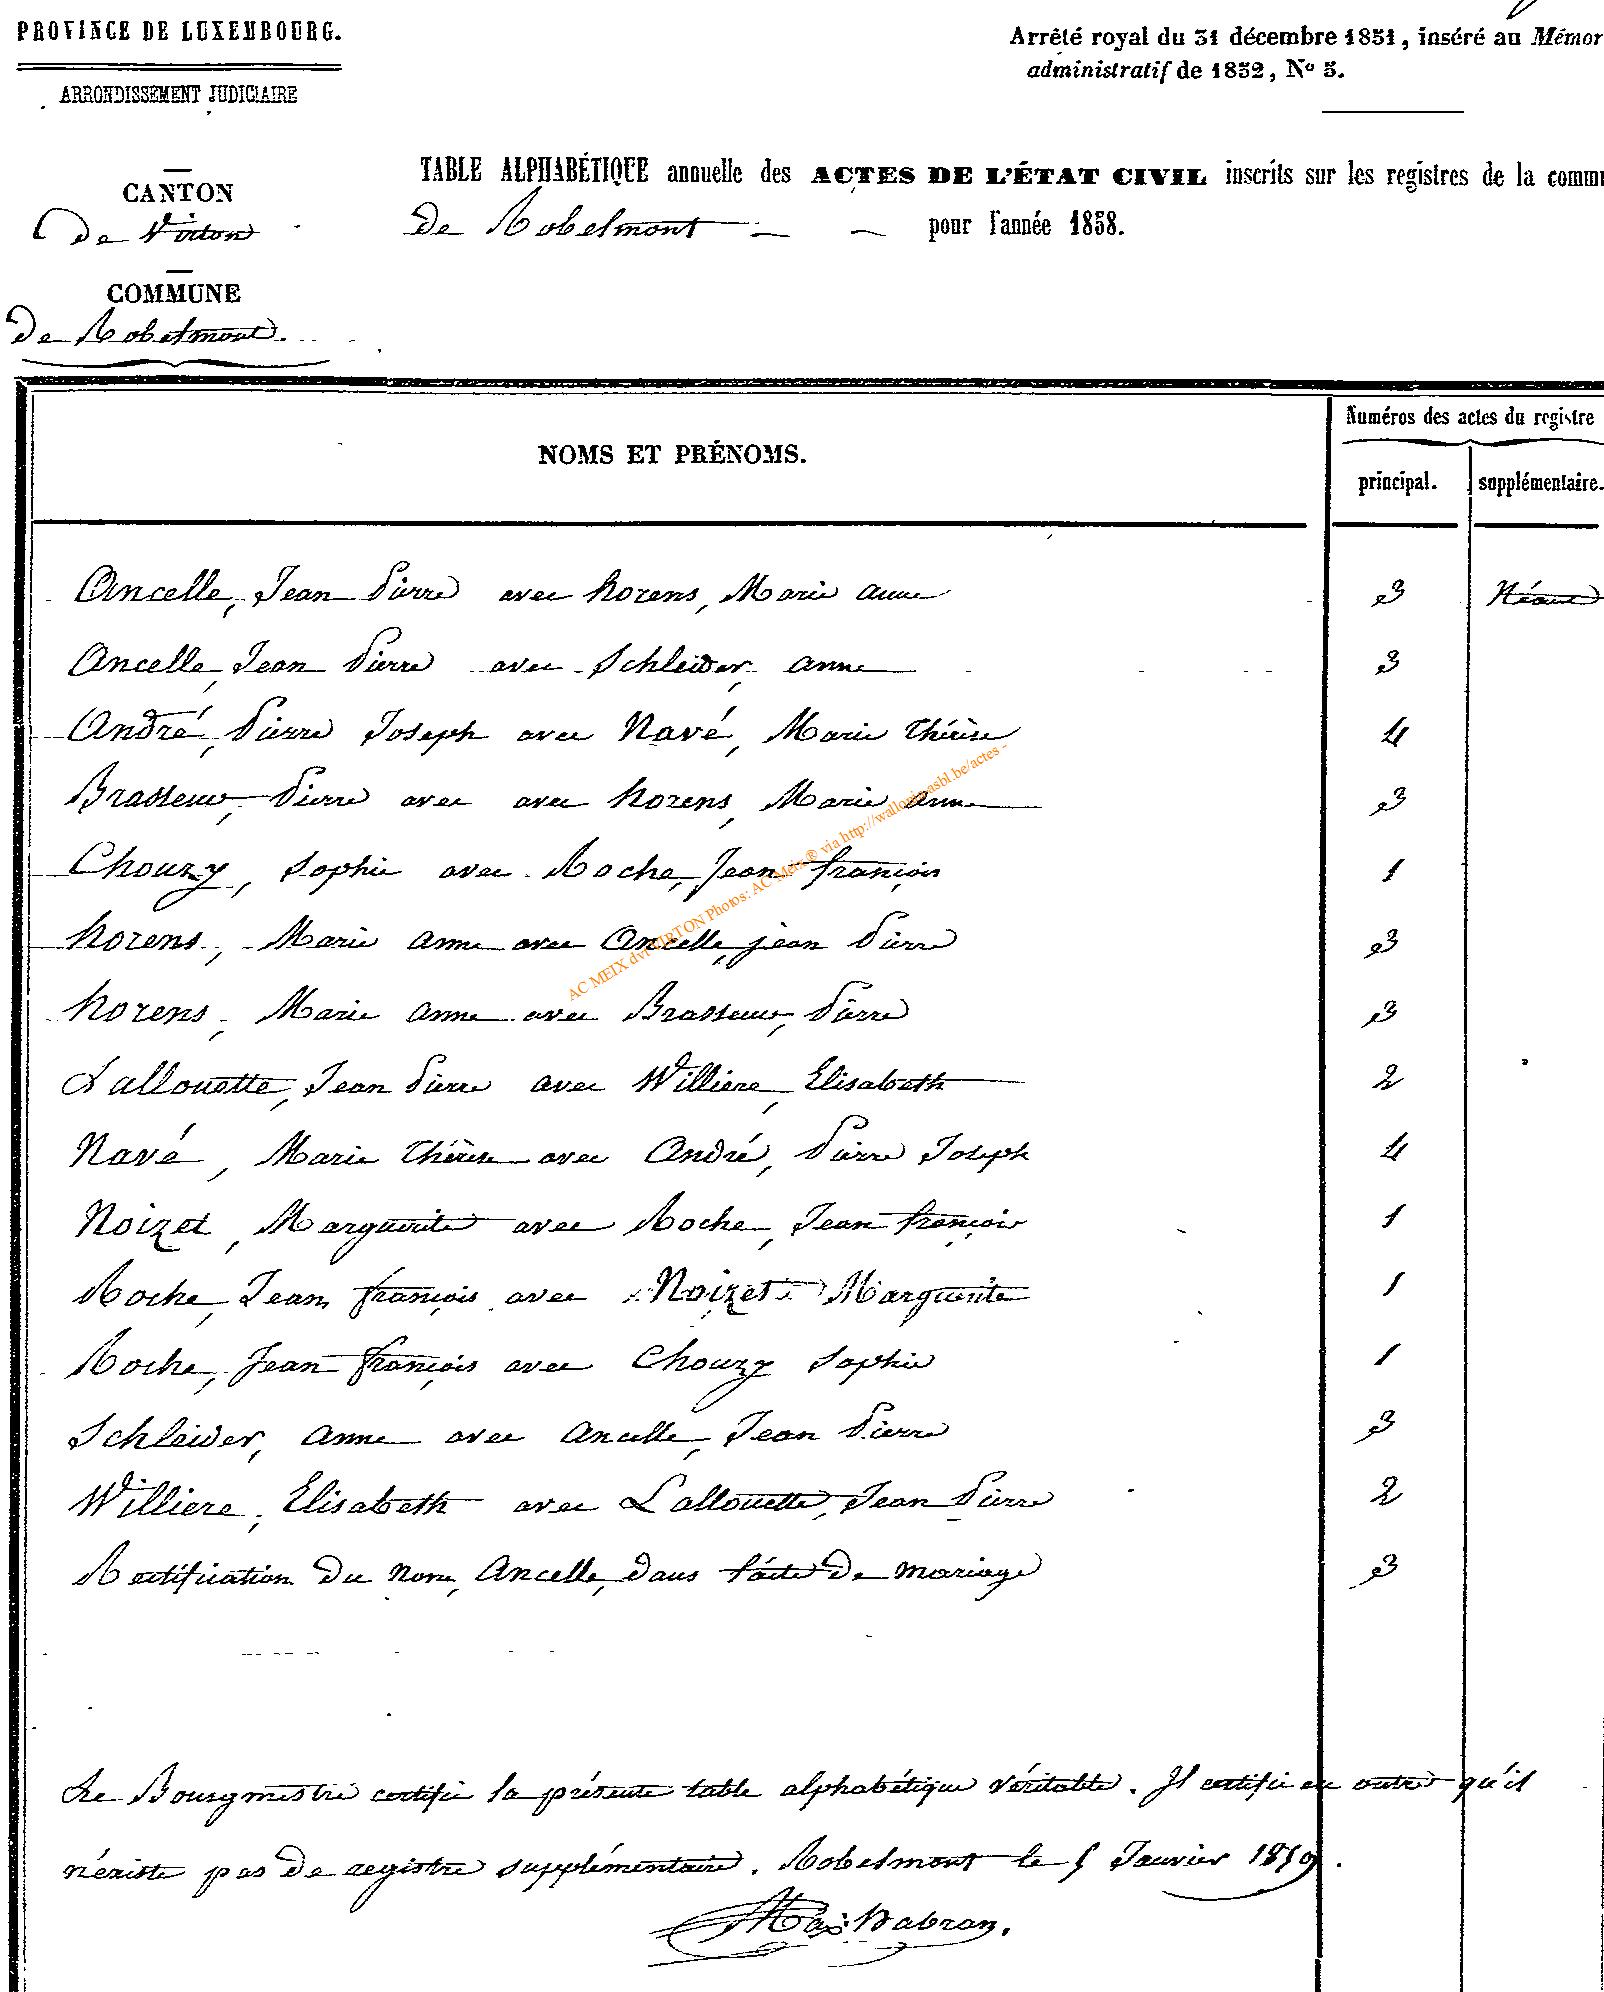 PROVINCE DE LUXEMBOURG.
ARRONDISSEMENT JUDICIAIRE
CANTON
De Virton
COMMUNE
De Robelmont.
Arrêté royal du 31 décembre 1831, inséré au Mémor
administratif de 1832, No 3.
TABLE ALPHABÉTIQUE annuelle des ACTES DE L'ÉTAT CIVIL inscrits sur les registres de la commu
De Robelmont pour l'année 1858.
NOMS ET PRÉNOMS.
Numéros des actes du registre
principal. supplémentaire.
Ancelle, Jean Pierre avec Horens, Marie anne 3 Néant
Ancelle, Jean Pierre avec Schleider, anne 3
André, Pierre Joseph avec Navé, Marie Thérèse 4
Brasseur, Pierre avec avec Horens, Marie anne 3
Chouzy, Sophie avec Roche, Jean françois 1
Horens, Marie anne avec Ancelle, jean Pierre 3
Horens, Marie anne avec Brasseur, Pierre 3
Lallouette, Jean Pierre avec Williere, Elisabeth 2
Navé, Marie Thérèse avec André, Pierre Joseph 4
Noizet, Marguerite avec Roche, Jean françois 1
Roche, Jean françois avec Noizet Marguerite 1
Roche, Jean françois avec Chouzy Sophie 1
Schleider, anne avec ancelle, Jean Pierre 3
Williere, Elisabeth avec Lallouette, Jean Pierre 2
Rectification du nom, Ancelle, dans l'acte de mariage 3
Le Bourgmestre certifie la présente table alphabétique véritable. Il certifie en outre qu'il
n'existe pas de registre supplémentaire. Robelmont le 5 Janvier 1859.
AC MEIX dvt VIRTON Photos: AC Meix® via http://wallonia-asbl.be/actes -